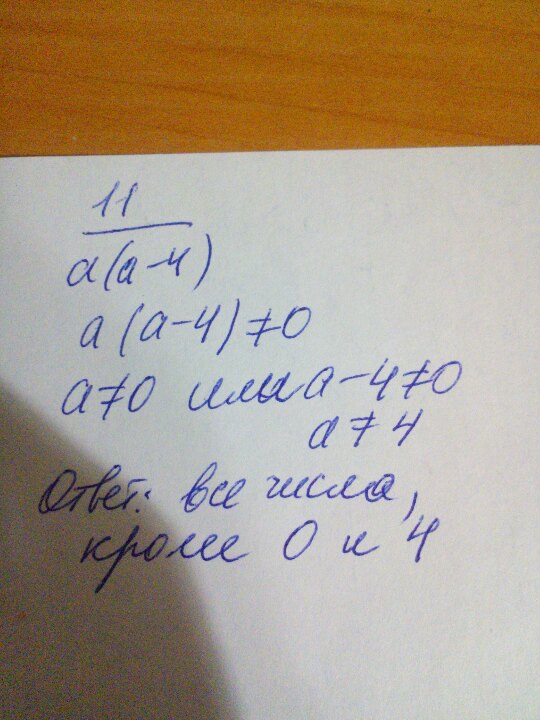 11
a(a-4)
a(a-4)≠0
a≠0 или a-4≠0
a≠4
Ответ: все числа,
кроме 0 и 4